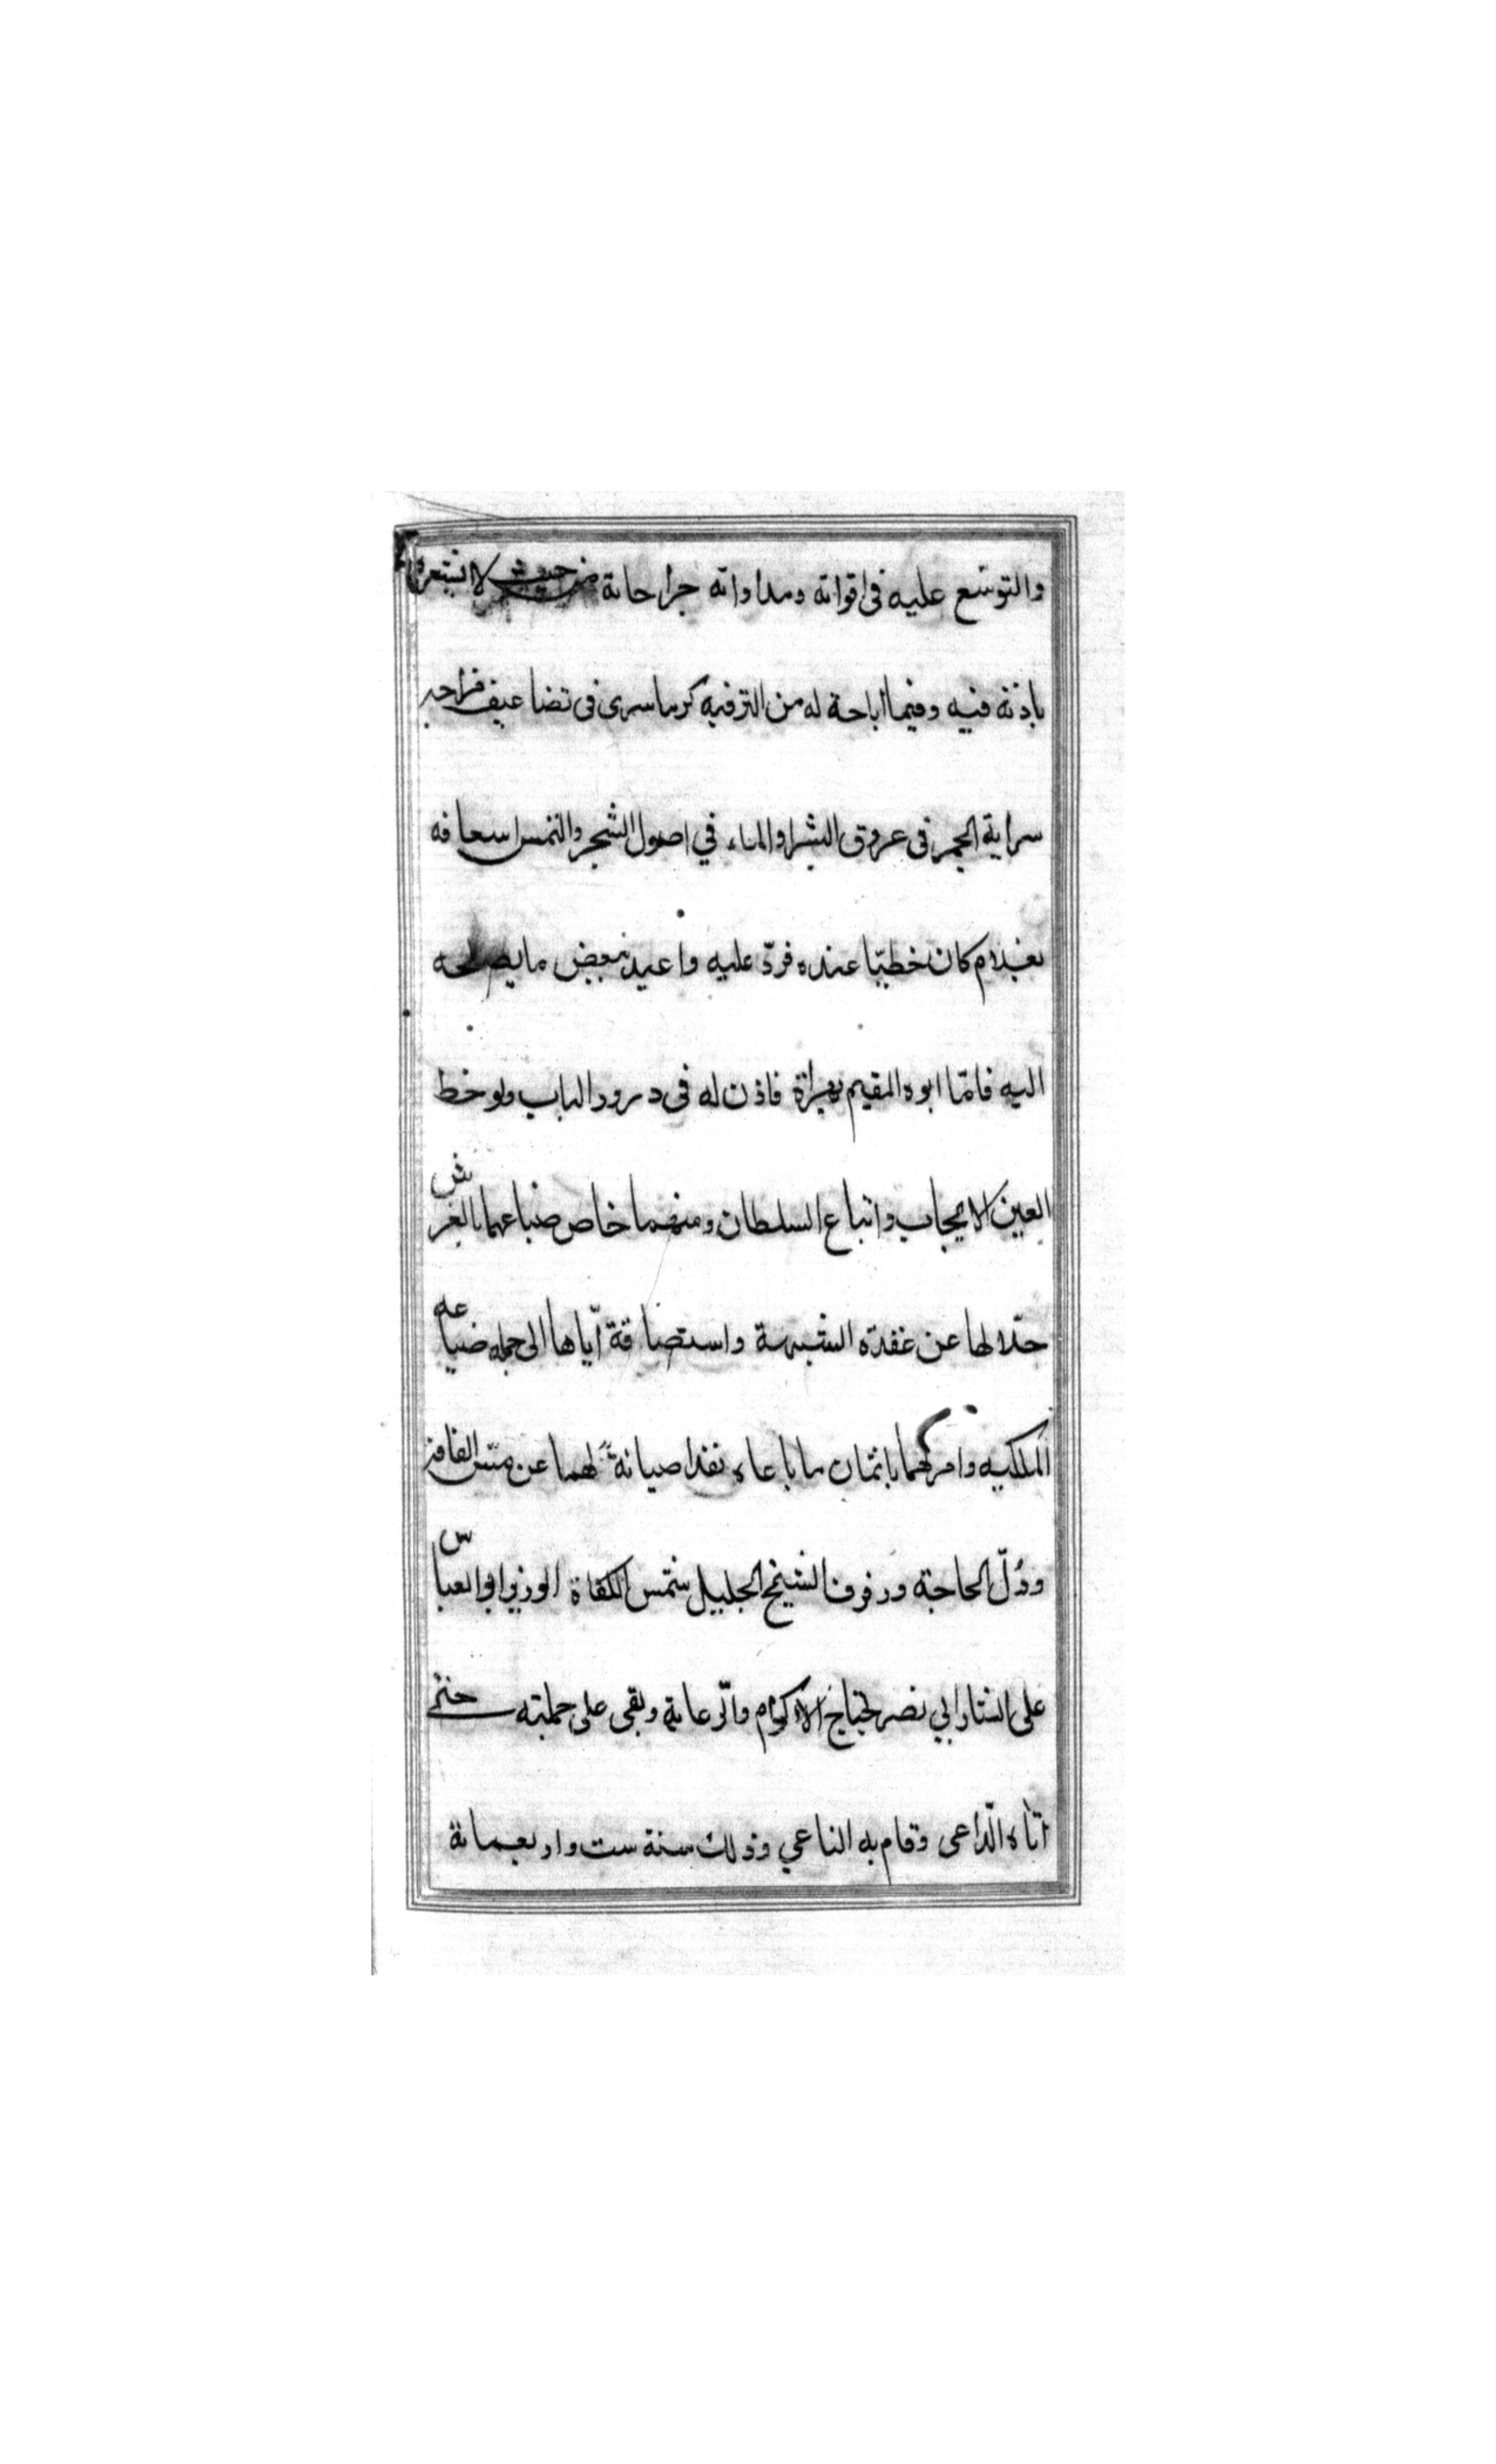 والتوسّع عليه فى اقواته ومداواته جراحاته من حيث لا يشعر
باذنه فيه وفيما اباحة له من الترفيه كرما سرى فى تضاعيف
سراية الخمر فى عروق البشر والماء في اصول الشجر والتمس اسعافه
بغلام كان خطيّا عنده فردّ عليه واعيد ببعض ما يصلحه
اليه فامّا ابوه المقيم بهراة فاذن له فى درور الباب ولوحظ
العين الايجاب واتباع السلطان ومنهما خاص ضياعهما بالغرش
حلّا لها عن عقدة الشبهة واستضافة ايّاها الى جملة ضياعه
الملكيه وامر لهما باثمان ما باعاه نقدا صيانة لهما عن مسّ الفاقة
وذُلّ الحاجة ورفرف الشيخ الجليل شمس الكفاة الوزير ابو العباس
على الشار ابي نصر بجناح الاكرام والرّعاية وبقى على جملته حتى
اتاه الدّاعى وقام به الناعي وذلك سنة ست واربعمائة